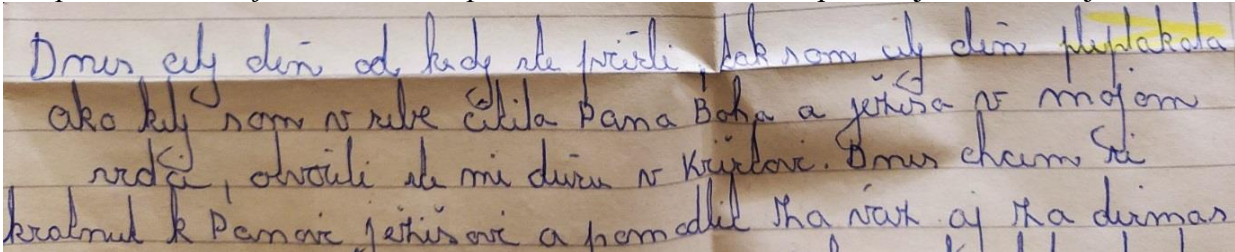 Dnes celý deň od kedy ste prišli, tak som celý deň plyplakala
ako keby som v sebe cítila Pana Boha a ježiša v mojom
srdci, otvorili ste mi dušu v Kristovi. Dnes chcem si
kraknut k Panovi ježišovi a pomodlit zha vas aj zha dirmas